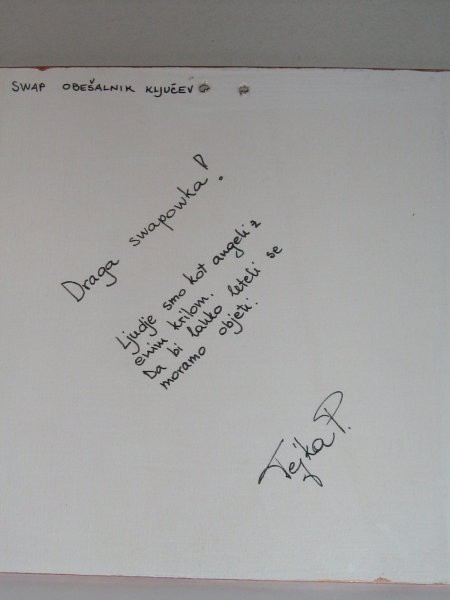 SWAP OBEŠALNIK KLJUČEV
Draga swapowka!
Ljudje smo kot angeli z
enim krilom.
Da bi lahko leteli se
moramo objeti.
Tejka P.